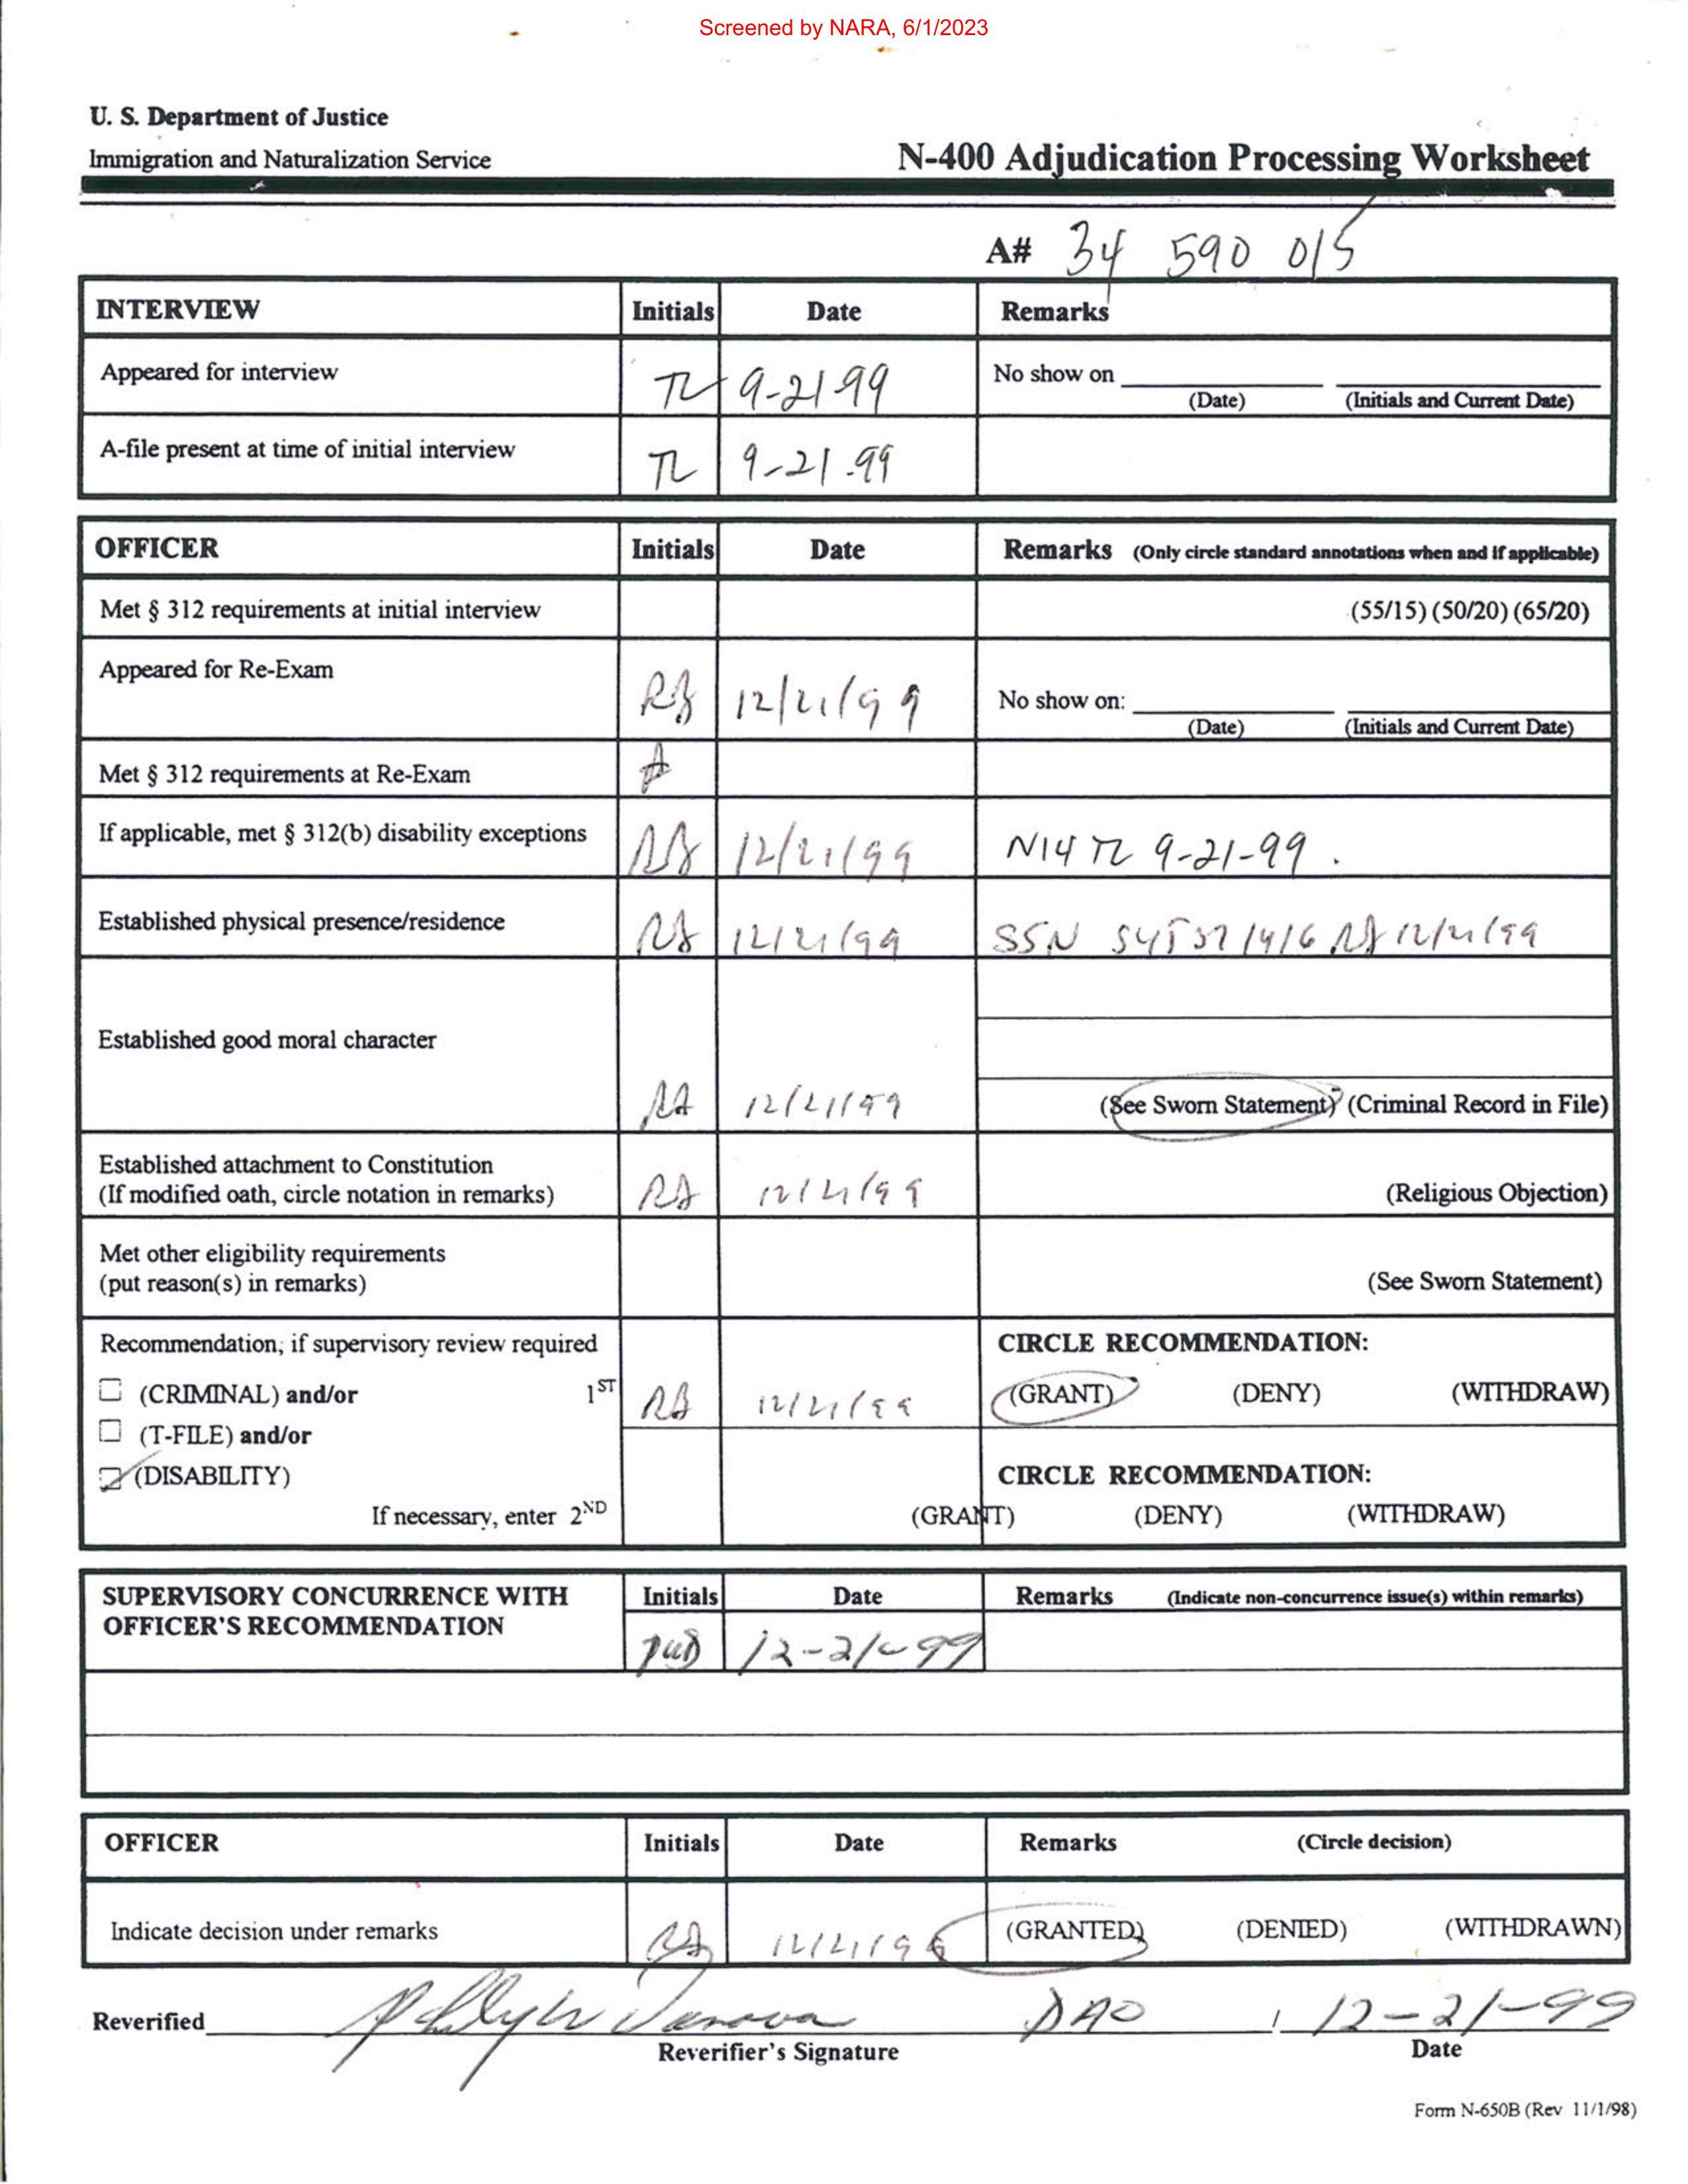 Screened by NARA, 6/1/2023
U. S. Department of Justice
Immigration and Naturalization Service
N-400 Adjudication Processing Worksheet
A# 34 590 015
INTERVIEW Initials Date Remarks
Appeared for interview TL 9-21-99 No show on
(Date) (Initials and Current Date)
A-file present at time of initial interview TL 9-21-99
OFFICER Initials Date Remarks (Only circle standard annotations when and if applicable)
Met § 312 requirements at initial interview (55/15) (50/20) (65/20)
Appeared for Re-Exam 12/21/99 No show on:
(Date) (Initials and Current Date)
Met § 312 requirements at Re-Exam
If applicable, met § 312(b) disability exceptions 12/21/99 N14 TL 9-21-99.
Established physical presence/residence 12/21/99 SSN 12/21/99
Established good moral character
12/21/99 (See Sworn Statement) (Criminal Record in File)
Established attachment to Constitution
(If modified oath, circle notation in remarks) 12/21/99 (Religious Objection)
Met other eligibility requirements
(put reason(s) in remarks) (See Sworn Statement)
Recommendation; if supervisory review required CIRCLE RECOMMENDATION:
(CRIMINAL) and/or 1ST 12/21/99 (GRANT) (DENY) (WITHDRAW)
(T-FILE) and/or
(DISABILITY) CIRCLE RECOMMENDATION:
If necessary, enter 2ND (GRANT) (DENY) (WITHDRAW)
SUPERVISORY CONCURRENCE WITH Initials Date Remarks (Indicate non-concurrence issue(s) within remarks)
OFFICER'S RECOMMENDATION 12-21-99
OFFICER Initials Date Remarks (Circle decision)
Indicate decision under remarks 12/21/99 (GRANTED) (DENIED) (WITHDRAWN)
Reverified DAO 12-21-99
Reverifier's Signature Date
Form N-650B (Rev 11/1/98)